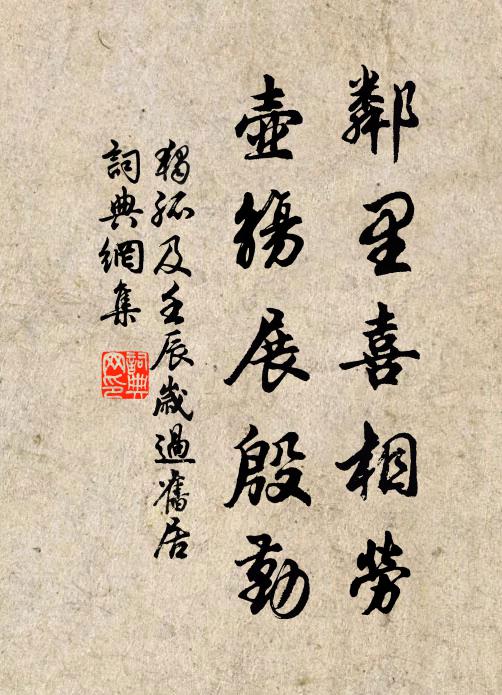 鄰里喜相勞
壺觴展殷勤
獨孤及壬辰歲過舊居
詞典網集
詞典网印